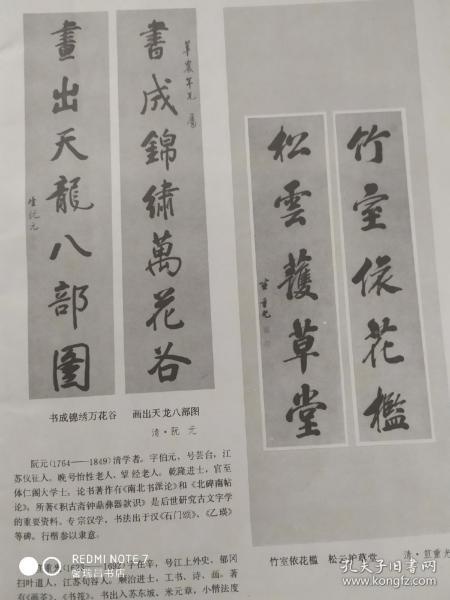 書成錦繡萬花谷
畫出天龍八部圖
阮元
竹室依花檻
松雲護草堂
书成锦绣万花谷 画出天龙八部图
清·阮 元
阮元(1764——1849)清学者。字伯元,号芸台,江
苏仪征人。晚号怡性老人、揅经老人。乾隆进士,官至
体仁阁大学士。论书著作有《南北书派论》和《北碑南帖
论》。所著《积古斋钟鼎彝器款识》是后世研究古文字学
的重要资料。专宗汉学,书法出于汉《石门颂》、《乙瑛》
等碑。行楷参以隶意。
竹室依花槛 松云护草堂
清·笪重光
字在辛,号江上外史、郁冈
扫叶道人,江苏句容人。顺治进士,工书、诗、画。著
有《画筌》、《书筏》。书出入苏东坡、米元章,小楷法度
REDMI NOTE 7
孔夫子旧书网